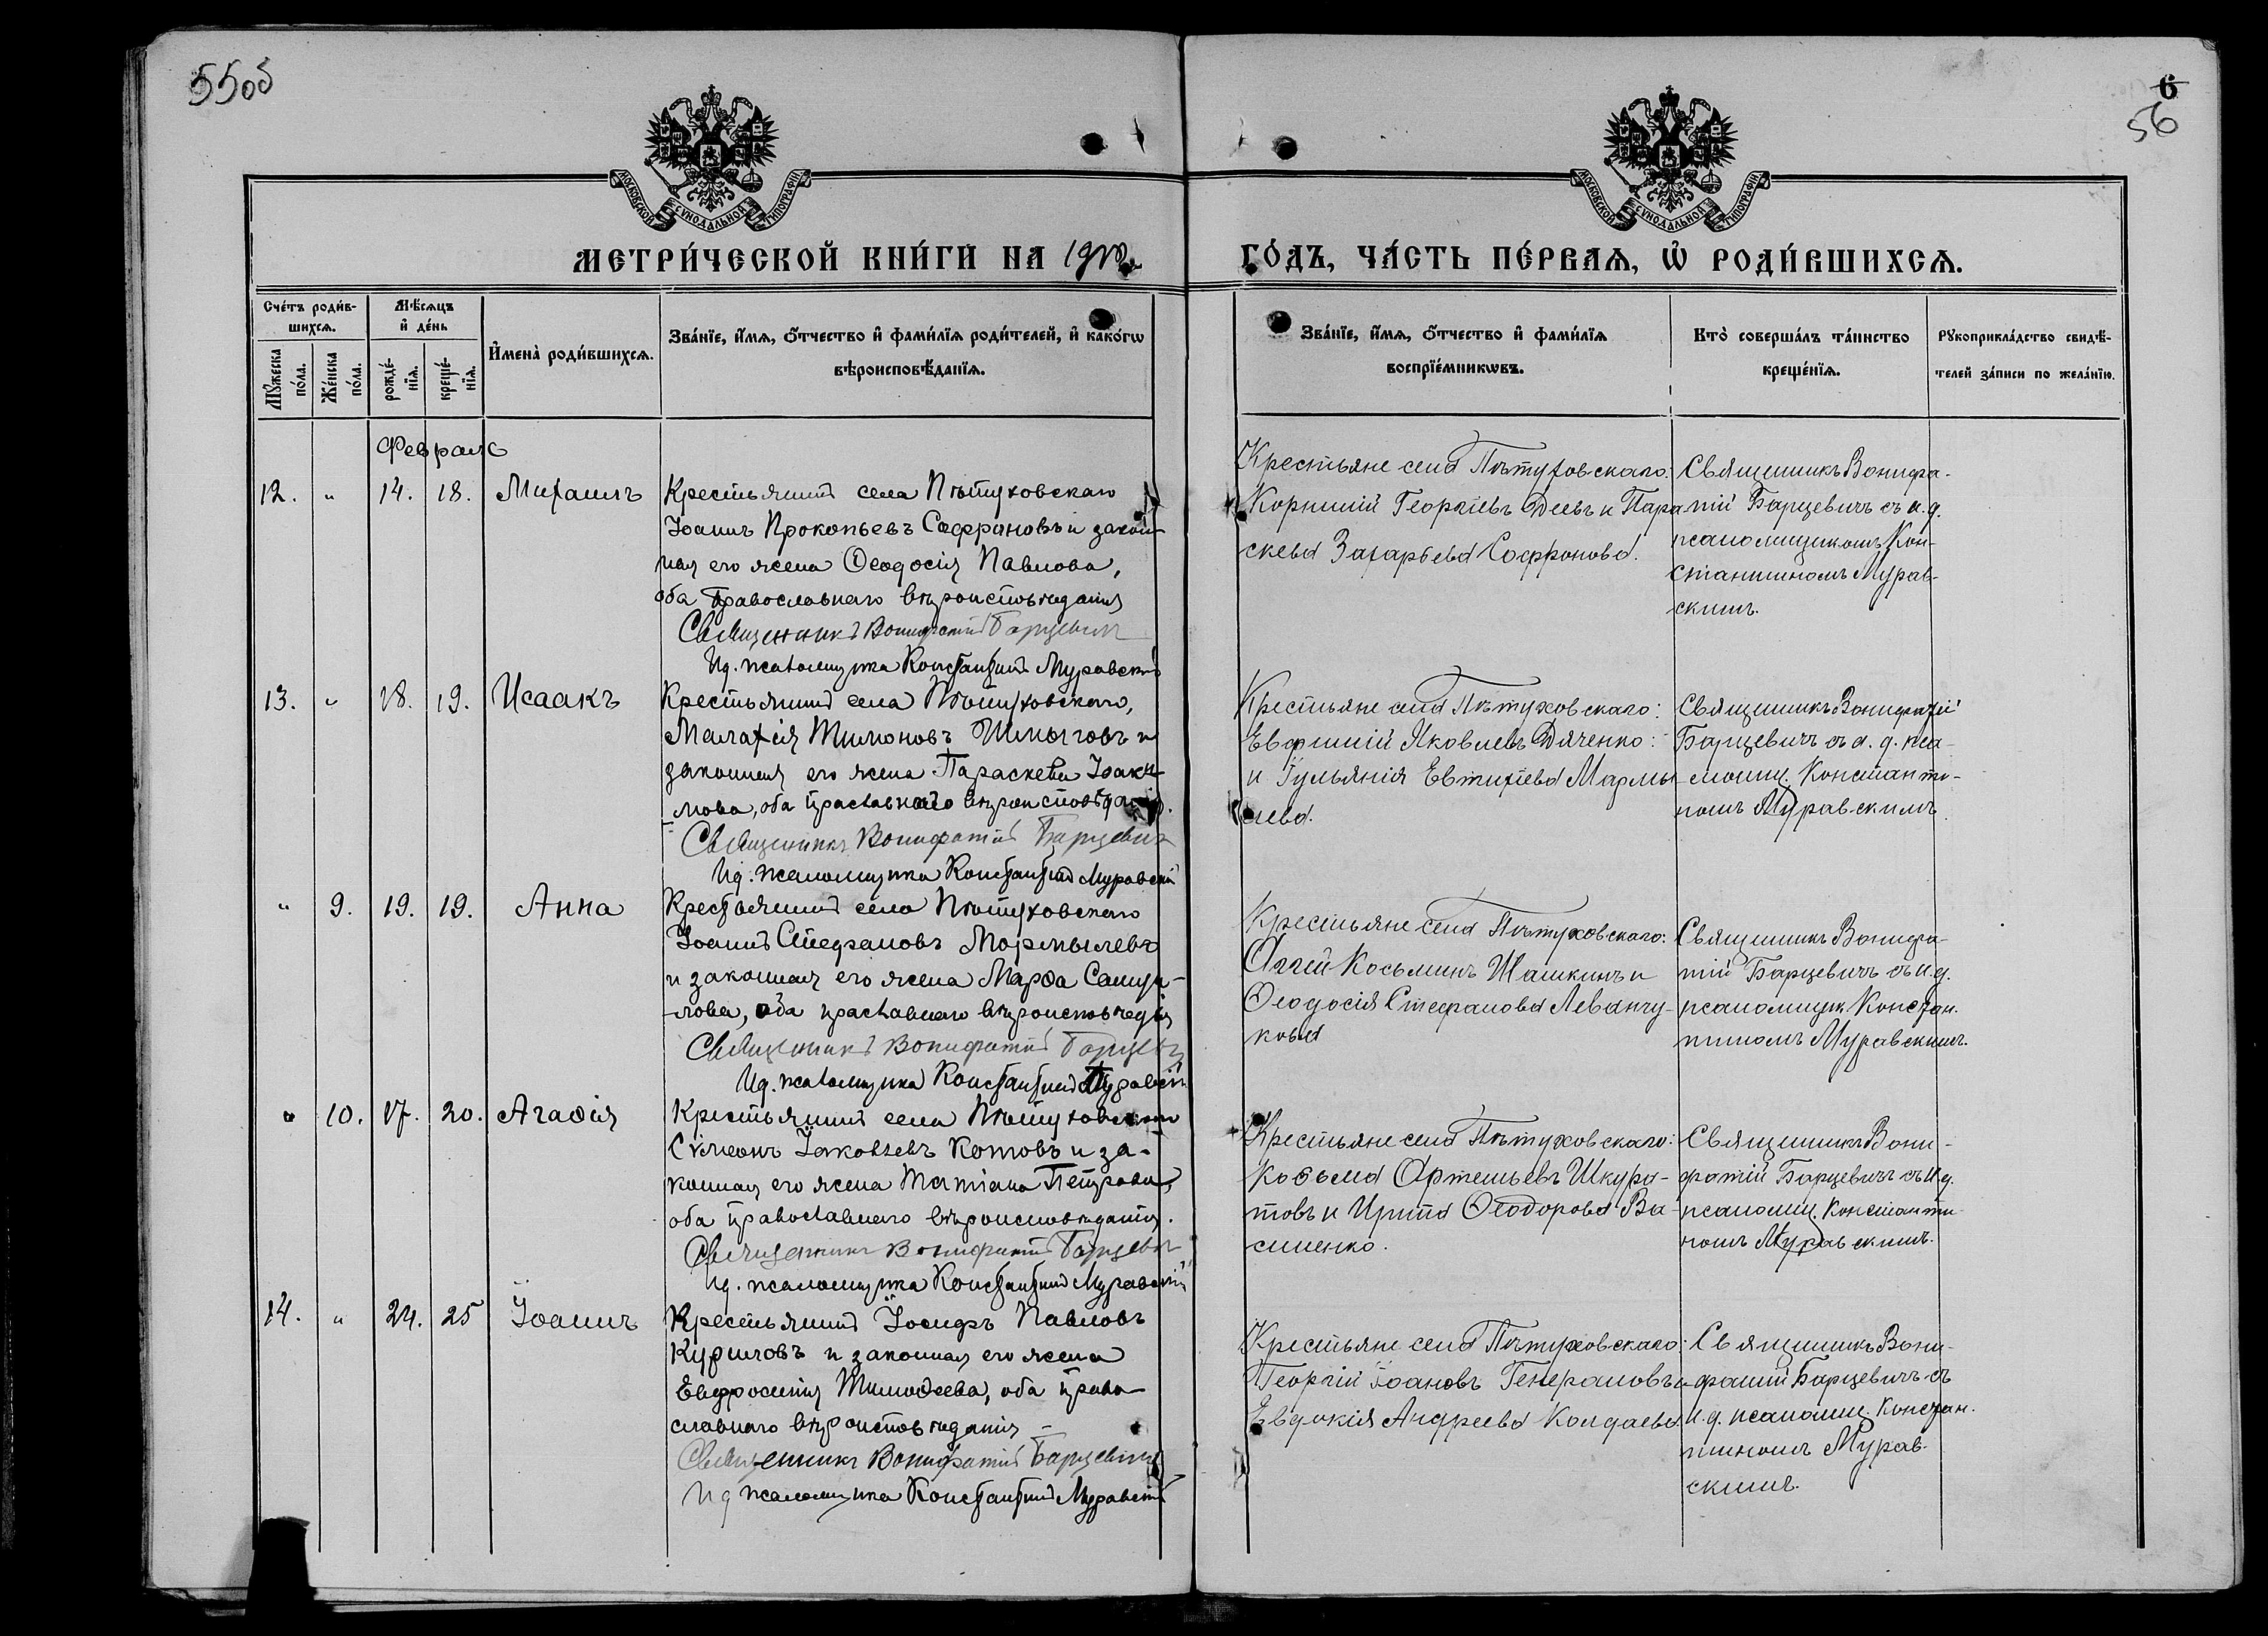 55об
6
56
МОСКОВСКОЙ СУНОДАЛЬНОЙ ТИПОГРАФІИ
МОСКОВСКОЙ СУНОДАЛЬНОЙ ТИПОГРАФІИ
МЕТРИ́ЧЕСКОЙ КНИ́ГИ НА
ГО́ДЪ, ЧА́СТЬ ПЕ́РВАѦ, Ѡ҆ РОДИ́ВШИХСѦ.
Сче́тъ роди́в-
шихсѧ.
Мѣ́сѧцъ
и҆ де́нь
Мꙋ́жеска
по́ла.
Же́нска
по́ла.
рожде́-
нїѧ.
креще́-
нїѧ.
И҆мена̀ роди́вшихсѧ.
Зва́нїе, и҆́мѧ, ѻ҆́тчество и҆ фами́лїѧ роди́телей, и҆ како́гѡ
вѣроисповѣ́данїѧ.
Зва́нїе, и҆́мѧ, ѻ҆́тчество и҆ фами́лїѧ
воспрїе́мникѡвъ.
Кто̀ соверша́лъ та́инство
креще́нїѧ.
Рꙋкоприкла́дство свидѣ́-
телей за́писи по жела́нїю.
Февраль
12. " 14. 18. Михаилъ
Крестьянинъ села Пѣтуховскаго
Іоаннъ Прокопьевъ Сафроновъ и закон-
ная его жена Ѳеодосія Павлова,
оба православнаго вѣроисповѣданія
Священникъ Вонифатій Барцевичъ
Ид. псаломщика Константинъ Муравскій
Крестьяне села Пѣтуховскаго:
Корнилій Георгіевъ Деевъ и Пара
скева Захарьева Софронова.
Священникъ Вонифа-
тій Барцевичъ съ и.д.
псаломщикомъ Кон-
стантиномъ Мурав-
скимъ.
13. " 18. 19. Исаакъ
Крестьянинъ села Пѣтуховскаго,
Малахія Тимоновъ Шмыговъ и
законная его жена Параскева Іоаки-
мова, оба православнаго
Священникъ Вонифатій Барцевичъ
Ид. псаломщика Константинъ Муравскій
Крестьяне села Пѣтуховскаго:
Евфимій Яковлевъ Дяченко:
и Іульянія Евтихіева Мармы
лева.
Священникъ Вонифатій
Барцевичъ съ и.д. пса-
ломщ. Константи-
номъ Муравскимъ
" 9. 19. 19. Анна
Крестьянинъ села Пѣтуховскаго
Іоаннъ Стефановъ Мармылевъ
и законная его жена Марѳа Самуи-
лова, оба
Священникъ Вонифатій Барцевичъ
Ид. псаломщика Константинъ Муравскій
Крестьяне села Пѣтуховскаго:
Аггей Косьминъ Шашкинъ и
Ѳеодосія Стефанова Леванчу-
кова
Священникъ Вонифа-
тій Барцевичъ съ и.д.
псаломщик. Констан.
тиномъ Муравскимъ.
" 10. 17. 20. Агаѳія
Крестьянинъ села Пѣтуховскаго
Сѵмеонъ Іаковлевъ Котовъ и за-
конная его жена Татіана Петрова,
оба православнаго вѣроисповѣданія.
Священникъ Вонифатій Барцевичъ
Ид. псаломщика Константинъ Муравскій
Крестьяне села Пѣтуховскаго:
Косьма Артемьевъ Шкура-
товъ и Ирина Ѳеодорова Ва-
силенко.
Священникъ Вони-
фатій Барцевичъ съ и.д.
псаломщ. Константи-
номъ Муравскимъ.
14. " 24. 25 Іоаннъ
Крестьянинъ Іосифъ Павловъ
Куриловъ и законная его жена
Евфросинія Тимоѳеева, оба право-
славнаго вѣроисповѣданія
Священникъ Вонифатій Барцевичъ
Ид псаломщика Константинъ Муравскій
Крестьяне села Пѣтуховскаго:
Георгій Іоановъ Генераловъ и
Евдокія Андреева Колдаева
Священникъ Вони-
фатій Барцевичъ съ
и.д. псаломщ. Констан.
тиномъ Мурав-
скимъ.